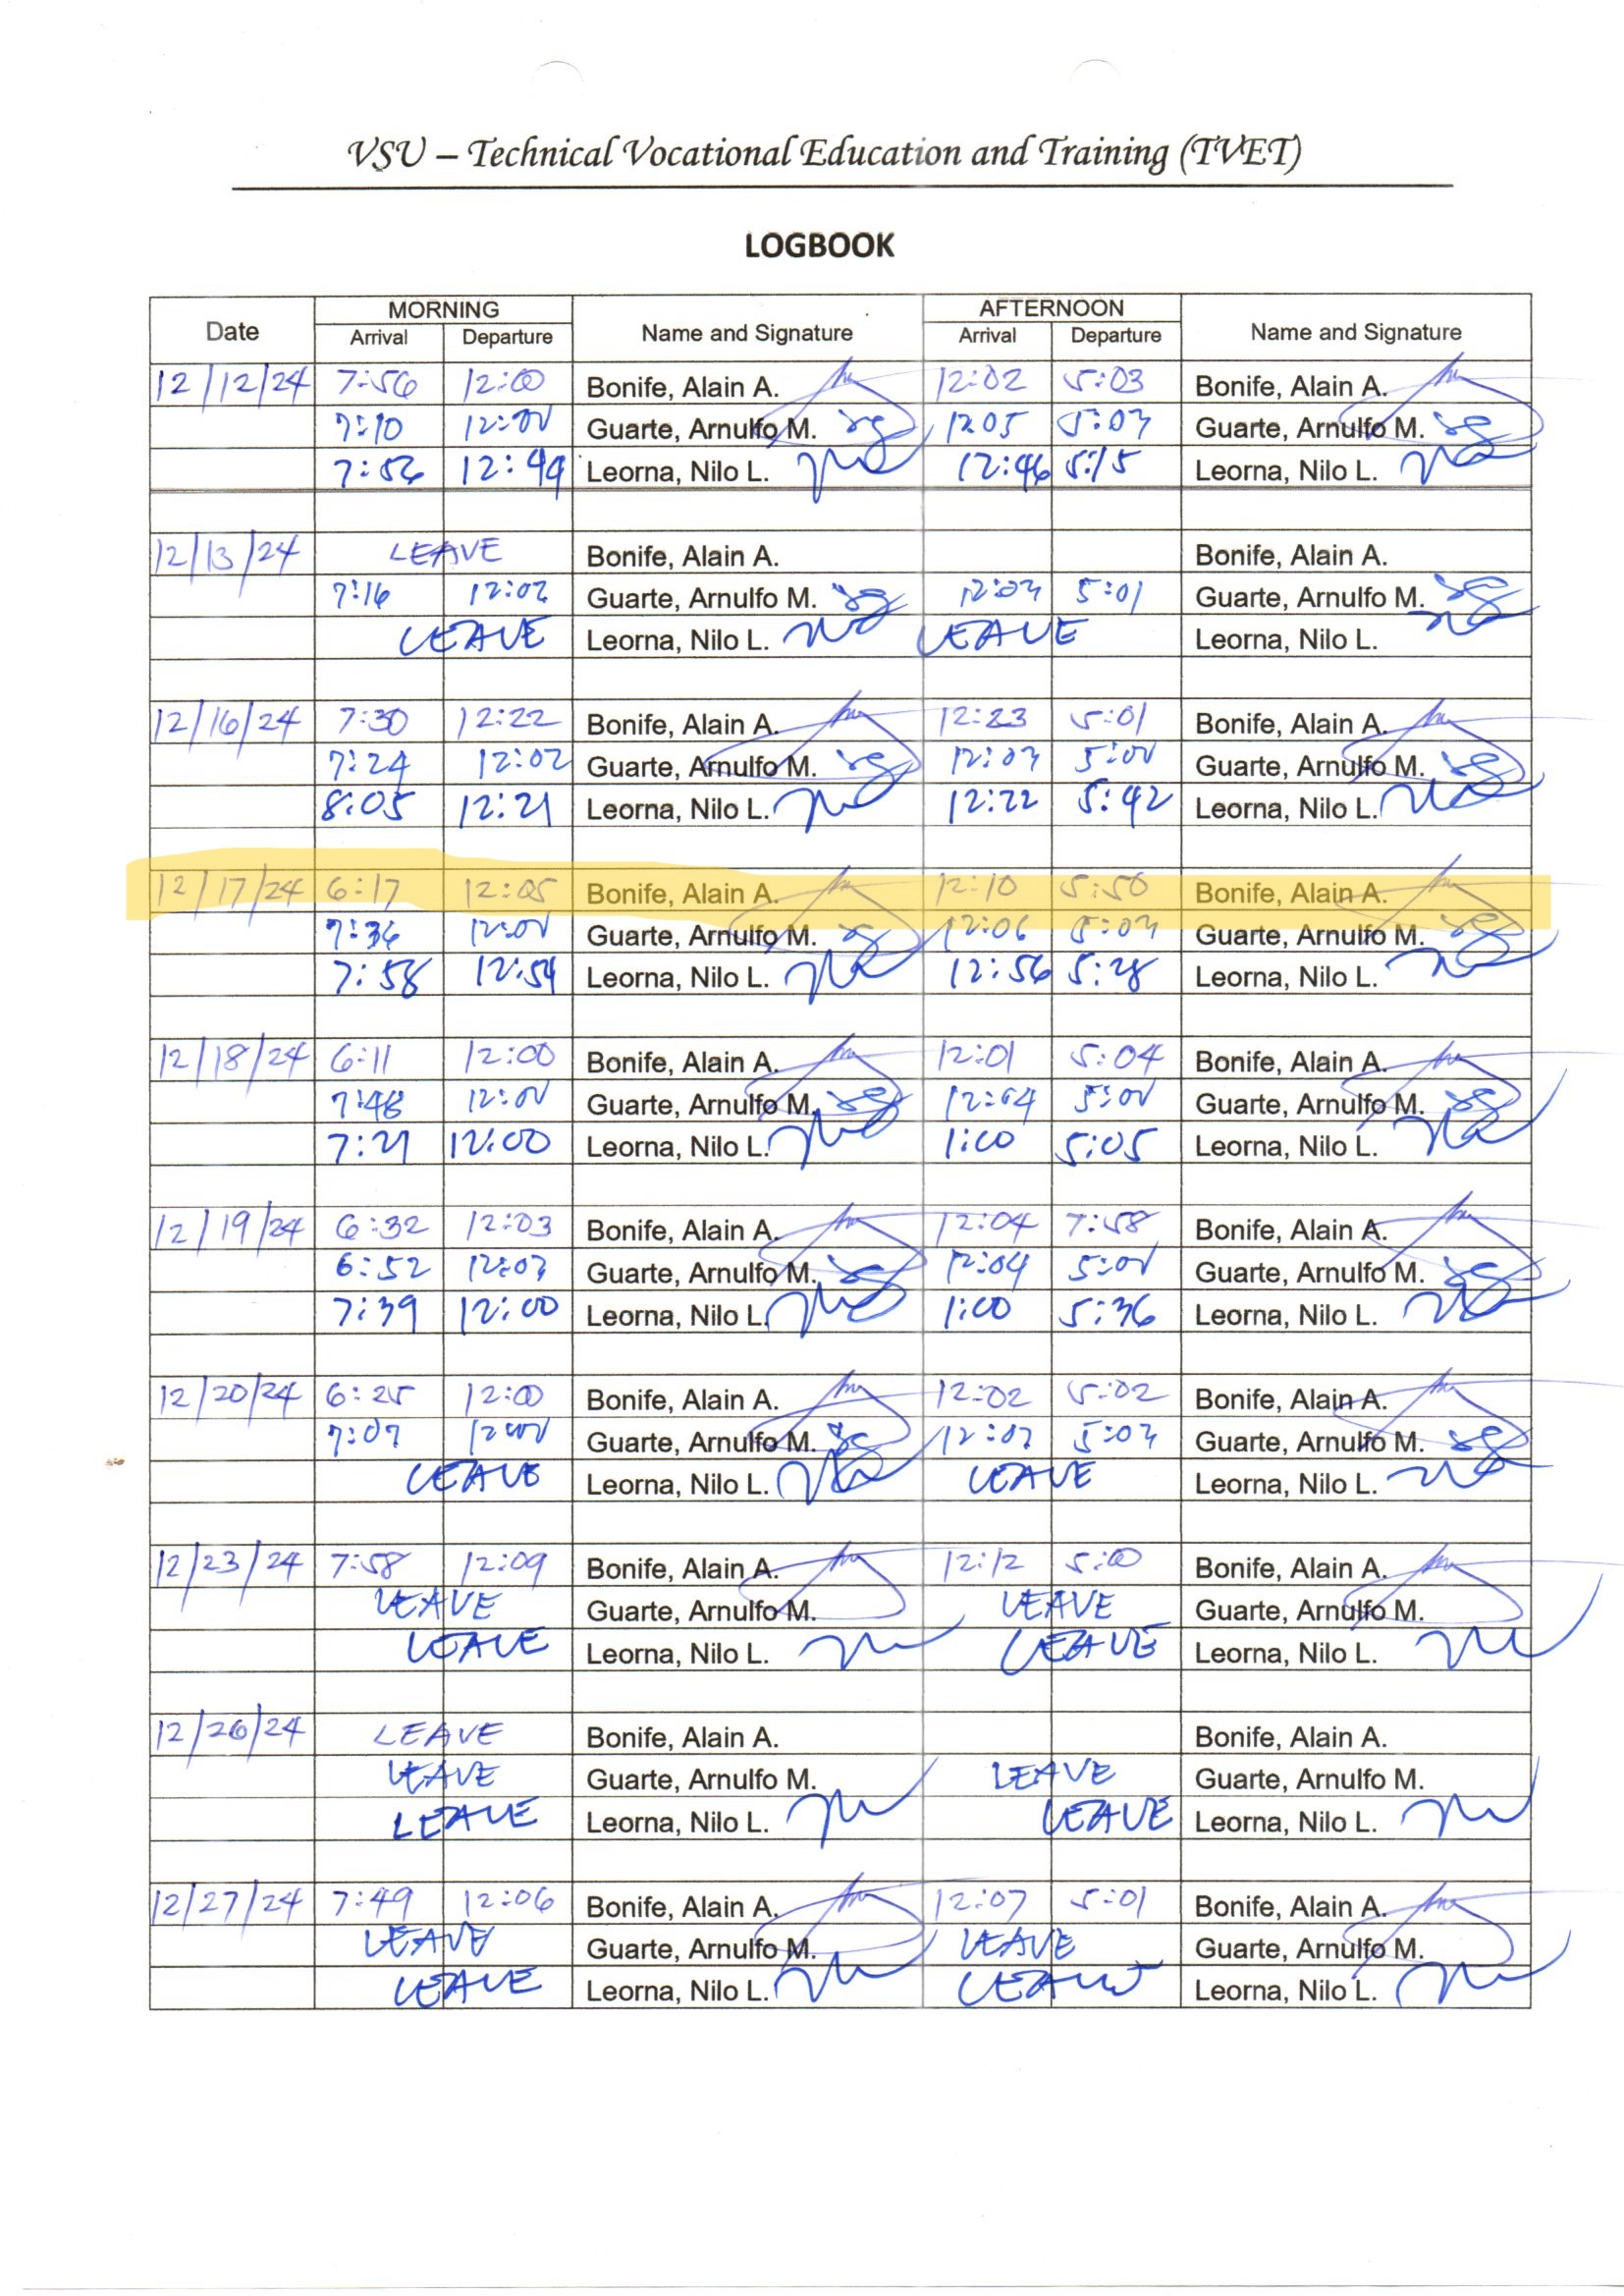 VSU – Technical Vocational Education and Training (TVET)
LOGBOOK
Date MORNING Name and Signature AFTERNOON Name and Signature
Arrival Departure Arrival Departure
12/12/24 7:56 12:00 Bonife, Alain A. 12:02 5:03 Bonife, Alain A.
7:10 Guarte, Arnulfo M. 12:05 5:03 Guarte, Arnulfo M.
7:56 12:44 Leorna, Nilo L. 12:46 5:15 Leorna, Nilo L.
12/13/24 LEAVE Bonife, Alain A. Bonife, Alain A.
7:16 12:02 Guarte, Arnulfo M. 12:03 5:01 Guarte, Arnulfo M.
LEAVE Leorna, Nilo L. LEAVE Leorna, Nilo L.
12/16/24 7:30 12:22 Bonife, Alain A. 12:23 5:01 Bonife, Alain A.
7:24 12:02 Guarte, Arnulfo M. 12:03 Guarte, Arnulfo M.
8:05 12:21 Leorna, Nilo L. 12:22 5:42 Leorna, Nilo L.
12/17/24 6:17 12:05 Bonife, Alain A. 12:10 5:50 Bonife, Alain A.
7:36 Guarte, Arnulfo M. 12:06 5:03 Guarte, Arnulfo M.
7:58 12:54 Leorna, Nilo L. 12:56 5:28 Leorna, Nilo L.
12/18/24 6:11 12:00 Bonife, Alain A. 12:01 5:04 Bonife, Alain A.
7:48 Guarte, Arnulfo M. 12:04 Guarte, Arnulfo M.
7:21 12:00 Leorna, Nilo L. 1:00 5:05 Leorna, Nilo L.
12/19/24 6:32 12:03 Bonife, Alain A. 12:04 7:58 Bonife, Alain A.
6:52 12:03 Guarte, Arnulfo M. 12:04 Guarte, Arnulfo M.
7:39 12:00 Leorna, Nilo L. 1:00 5:36 Leorna, Nilo L.
12/20/24 6:25 12:00 Bonife, Alain A. 12:02 5:02 Bonife, Alain A.
7:07 Guarte, Arnulfo M. 12:03 5:03 Guarte, Arnulfo M.
LEAVE Leorna, Nilo L. LEAVE Leorna, Nilo L.
12/23/24 7:58 12:09 Bonife, Alain A. 12:12 5:00 Bonife, Alain A.
LEAVE Guarte, Arnulfo M. LEAVE Guarte, Arnulfo M.
LEAVE Leorna, Nilo L. LEAVE Leorna, Nilo L.
12/26/24 LEAVE Bonife, Alain A. Bonife, Alain A.
LEAVE Guarte, Arnulfo M. LEAVE Guarte, Arnulfo M.
LEAVE Leorna, Nilo L. LEAVE Leorna, Nilo L.
12/27/24 7:49 12:06 Bonife, Alain A. 12:07 5:01 Bonife, Alain A.
LEAVE Guarte, Arnulfo M. LEAVE Guarte, Arnulfo M.
LEAVE Leorna, Nilo L. LEAVE Leorna, Nilo L.